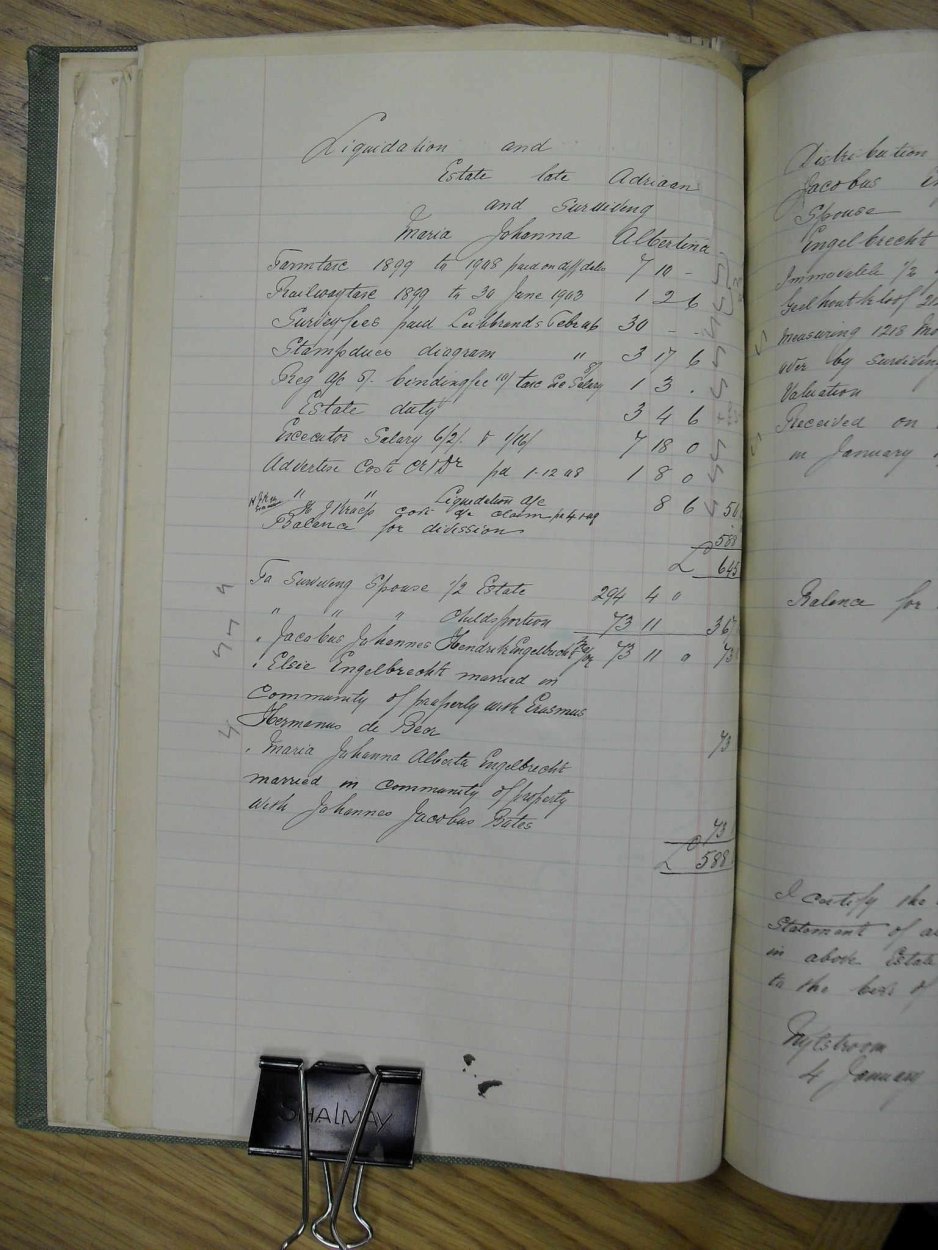 Liquidation and
Estate late Adriaan
and surviving
Maria Johanna Albertina
Farmtax 1899 to 1908 paid on diff dates 7 10 -
Railwaytax 1899 to 30 June 1903 1 2 6
Surveyfees paid 30 - -
Stampdues diagram " 3 17 6
Reg a/c 5/. bendingfee 10/ 1 3 .
Estate duty 3 4 6
Executor Salary 7 18 0
Cost Cr/Dr pd 1.12.08 1 8 0
" " Liquidation a/c 8 6 56
cost a/c claim
Balence for division 588
£ 645
To Surviving Spouse 1/2 Estate 294 4 0
" " " Childsportion 73 11 367
" Jacobus Johannes Hendrik Engelbrecht 73 11 0 73
" Elsie Engelbrecht married in
Community of property with Erasmus
Hermanus de Beer 73
" Maria Johanna Alberta Engelbrecht
married in community of property
with Johannes Jacobus Bates 73
£ 588
Distribution
Jacobus
Spouse
Engelbrecht
Immovable 1/2
Geelhoutkloof
Measuring 1218 Mo
over by surviving
Valuation
Received on
in January
Balence for
I certify the
Statement of
in above Estate
to the best of
Nylstroom
4 January
SHALMAY